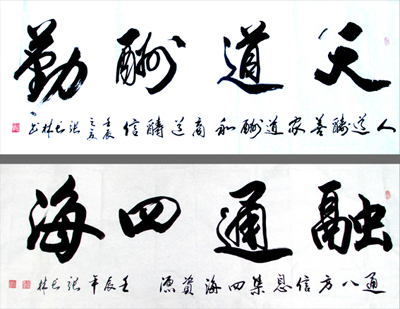 天道酬勤
人道醻善家道酬和商道醻信
壬辰之夏张林书
融通四海
通八方信息集四海资源 壬辰年张林